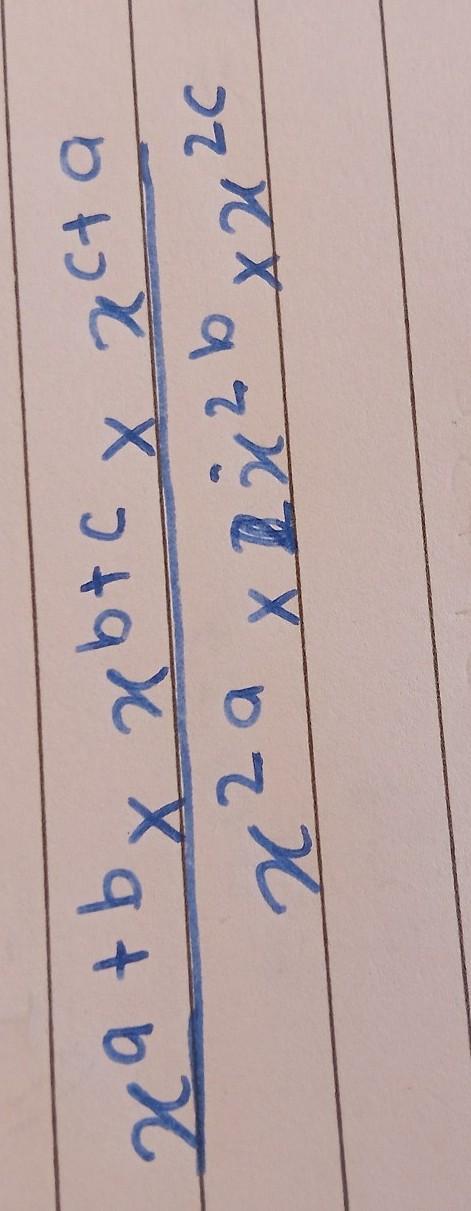 x^{a+b} × x^{b+c} × x^{c+a}
x^{2a} × x^{2b} × x^{2c}